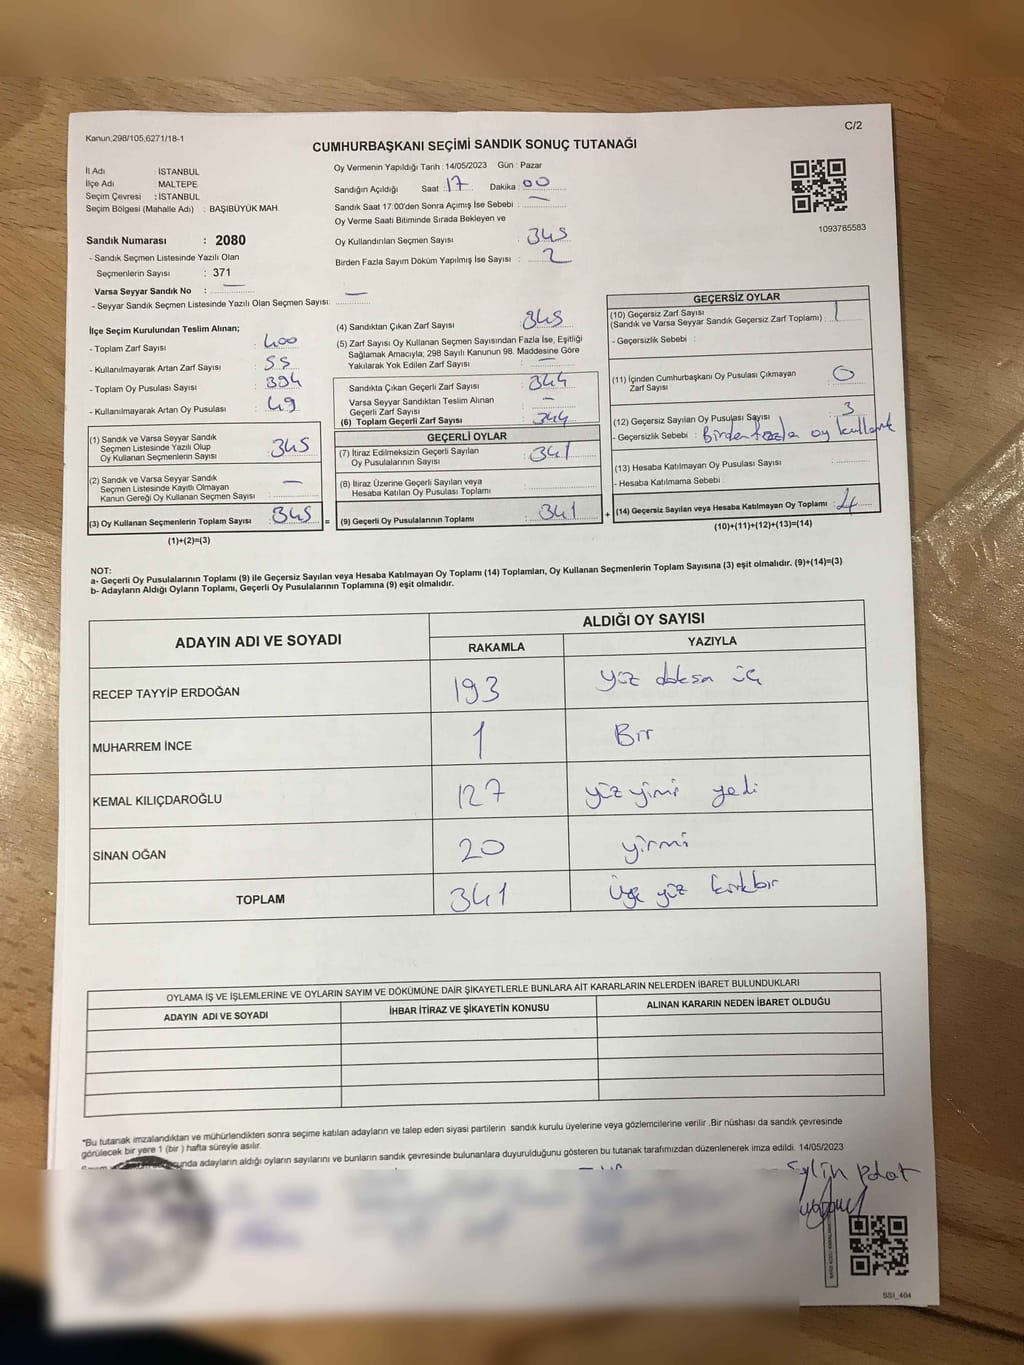 Kanun;298/105;6271/18-1
C/2
CUMHURBAŞKANI SEÇİMİ SANDIK SONUÇ TUTANAĞI
İl Adı : İSTANBUL
İlçe Adı : MALTEPE
Seçim Çevresi : İSTANBUL
Seçim Bölgesi (Mahalle Adı) : BAŞIBÜYÜK MAH.
Sandık Numarası : 2080
- Sandık Seçmen Listesinde Yazılı Olan
Seçmenlerin Sayısı : 371
Varsa Seyyar Sandık No : —
- Seyyar Sandık Seçmen Listesinde Yazılı Olan Seçmen Sayısı: —
Oy Vermenin Yapıldığı Tarih : 14/05/2023 Gün : Pazar
Sandığın Açıldığı Saat : 17 Dakika : 00
Sandık Saat 17:00'den Sonra Açımış İse Sebebi : —
Oy Verme Saati Bitiminde Sırada Bekleyen ve
Oy Kullandırılan Seçmen Sayısı : 345
Birden Fazla Sayım Döküm Yapılmış İse Sayısı : 2
1093785583
İlçe Seçim Kurulundan Teslim Alınan;
- Toplam Zarf Sayısı : 400
- Kullanılmayarak Artan Zarf Sayısı : 55
- Toplam Oy Pusulası Sayısı : 394
- Kullanılmayarak Artan Oy Pusulası : 49
(1) Sandık ve Varsa Seyyar Sandık
Seçmen Listesinde Yazılı Olup
Oy Kullanan Seçmenlerin Sayısı : 345
(2) Sandık ve Varsa Seyyar Sandık
Seçmen Listesinde Kayıtlı Olmayan
Kanun Gereği Oy Kullanan Seçmen Sayısı : —
(3) Oy Kullanan Seçmenlerin Toplam Sayısı : 345
(1)+(2)=(3)
(4) Sandıktan Çıkan Zarf Sayısı : 345
(5) Zarf Sayısı Oy Kullanan Seçmen Sayısından Fazla İse, Eşitliği
Sağlamak Amacıyla; 298 Sayılı Kanunun 98. Maddesine Göre
Yakılarak Yok Edilen Zarf Sayısı : —
Sandıkta Çıkan Geçerli Zarf Sayısı : 344
Varsa Seyyar Sandıktan Teslim Alınan
Geçerli Zarf Sayısı : —
(6) Toplam Geçerli Zarf Sayısı : 344
GEÇERLİ OYLAR
(7) İtiraz Edilmeksizin Geçerli Sayılan
Oy Pusulalarının Sayısı : 341
(8) İtiraz Üzerine Geçerli Sayılan veya
Hesaba Katılan Oy Pusulası Toplamı :
= (9) Geçerli Oy Pusulalarının Toplamı : 341
GEÇERSİZ OYLAR
(10) Geçersiz Zarf Sayısı
(Sandık ve Varsa Seyyar Sandık Geçersiz Zarf Toplamı) : 1
- Geçersizlik Sebebi :
(11) İçinden Cumhurbaşkanı Oy Pusulası Çıkmayan
Zarf Sayısı : 0
(12) Geçersiz Sayılan Oy Pusulası Sayısı : 3
- Geçersizlik Sebebi : Birden fazla oy kullant
(13) Hesaba Katılmayan Oy Pusulası Sayısı :
- Hesaba Katılmama Sebebi :
+ (14) Geçersiz Sayılan veya Hesaba Katılmayan Oy Toplamı : 4
(10)+(11)+(12)+(13)=(14)
NOT:
a- Geçerli Oy Pusulalarının Toplamı (9) ile Geçersiz Sayılan veya Hesaba Katılmayan Oy Toplamı (14) Toplamları, Oy Kullanan Seçmenlerin Toplam Sayısına (3) eşit olmalıdır. (9)+(14)=(3)
b- Adayların Aldığı Oyların Toplamı, Geçerli Oy Pusulalarının Toplamına (9) eşit olmalıdır.
ADAYIN ADI VE SOYADI ALDIĞI OY SAYISI
RAKAMLA YAZIYLA
RECEP TAYYİP ERDOĞAN 193 yüz doksa üç
MUHARREM İNCE 1 Bir
KEMAL KILIÇDAROĞLU 127 yüz yirmi yedi
SİNAN OĞAN 20 yirmi
TOPLAM 341 yüz kırkbir
OYLAMA İŞ VE İŞLEMLERİNE VE OYLARIN SAYIM VE DÖKÜMÜNE DAİR ŞİKAYETLERLE BUNLARA AİT KARARLARIN NELERDEN İBARET BULUNDUKLARI
ADAYIN ADI VE SOYADI İHBAR İTİRAZ VE ŞİKAYETİN KONUSU ALINAN KARARIN NEDEN İBARET OLDUĞU
*Bu tutanak imzalandıktan ve mühürlendikten sonra seçime katılan adayların ve talep eden siyasi partilerin sandık kurulu üyelerine veya gözlemcilerine verilir .Bir nüshası da sandık çevresinde
görülecek bir yere 1 (bir ) hafta süreyle asılır.
adayların aldığı oyların sayılarını ve bunların sandık çevresinde bulunanlara duyurulduğunu gösteren bu tutanak tarafımızdan düzenlenerek imza edildi. 14/05/2023
Polat
SSI_404